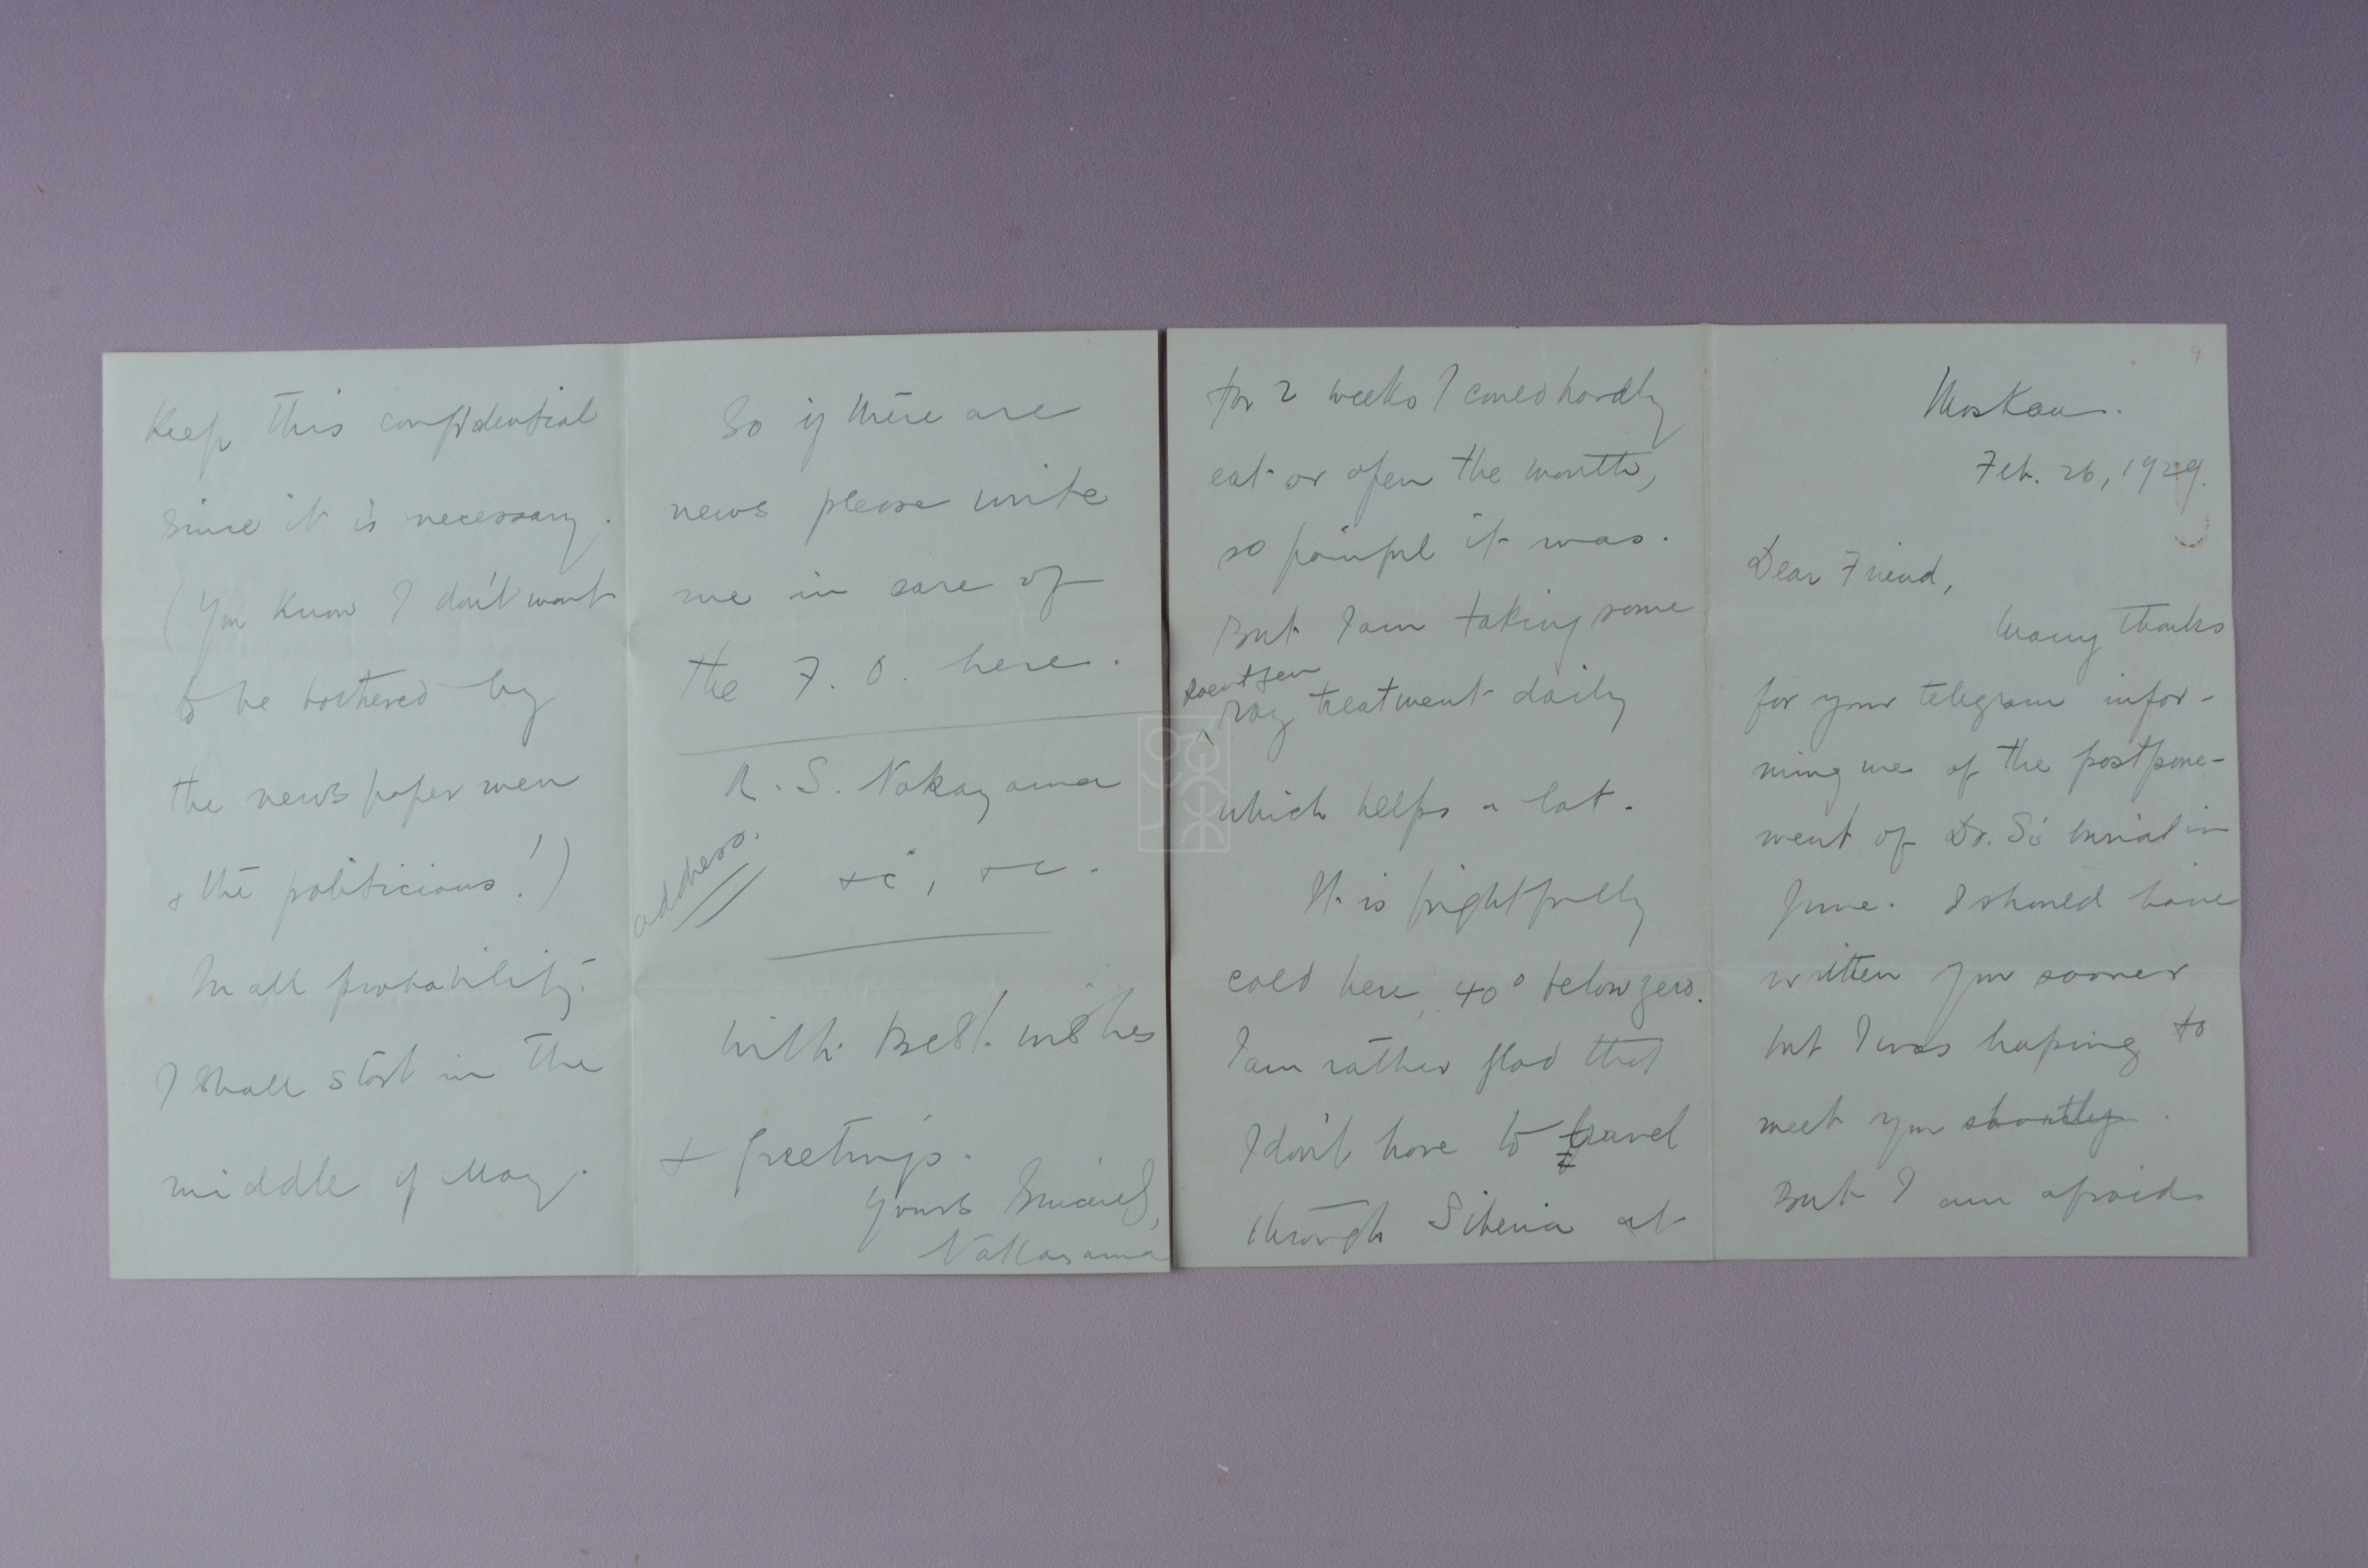 Moskau.
Feb. 26, 1929.
Dear Friend,
Many thanks
for your telegram infor-
ming me of the postpone-
ment of Dr. S's burial in
June. I should have
written you sooner
but I was hoping to
meet you shortly.
But I am afraid
for 2 weeks I could hardly
eat or open the mouth,
so painful it was.
But I am taking some
Roentgen
ray treatment daily
which helps a lot.
It is frightfully
cold here, 40° below zero.
I am rather glad that
I don't have to travel
through Siberia at
Keep this confidential
since it is necessary.
(You know I don't want
to be bothered by
the news paper men
& the politicians!)
In all probability
I shall start in the
middle of May.
So if there are
news please write
me in care of
the F. O. here.
R. S. Nakayama
address.
&c, &c.
With best wishes
& greetings.
Yours Sincerely,
Nakayama